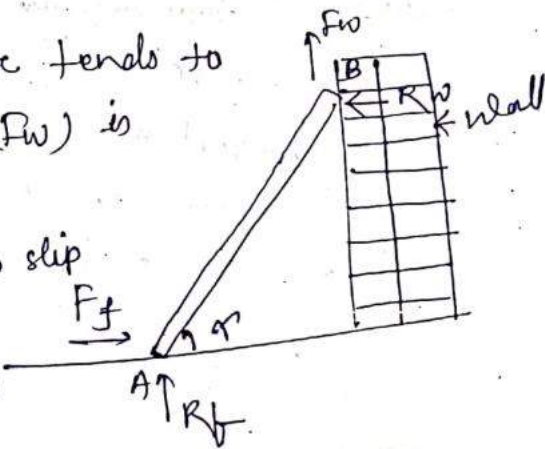 c tends to
(Fw) is
slip
Fw
B
Rw
wall
Ff
α
A
Rf